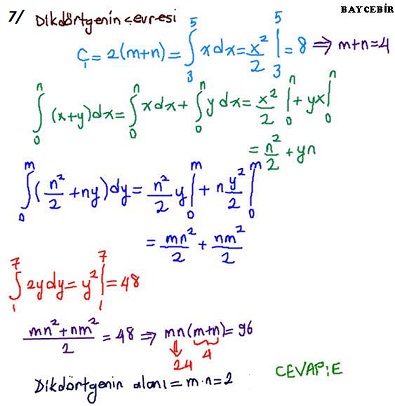 BAYCEBİR
7/ Dikdörtgenin çevresi
Ç = 2(m+n) = ∫₃⁵ x dx = x²/2 |₃⁵ = 8 ⇒ m+n=4
∫₀ⁿ (x+y)dx = ∫₀ⁿ x dx + ∫₀ⁿ y dx = x²/2 |₀ⁿ + yx |₀ⁿ
= n²/2 + yn
∫₀ᵐ (n²/2 + ny)dy = n²/2 y |₀ᵐ + n y²/2 |₀ᵐ
= mn²/2 + nm²/2
∫₁⁷ 2y dy = y² |₁⁷ = 48
(mn²+nm²)/2 = 48 ⇒ mn(m+n) = 96
24 4
Dikdörtgenin alanı = m·n = 2
CEVAP:E